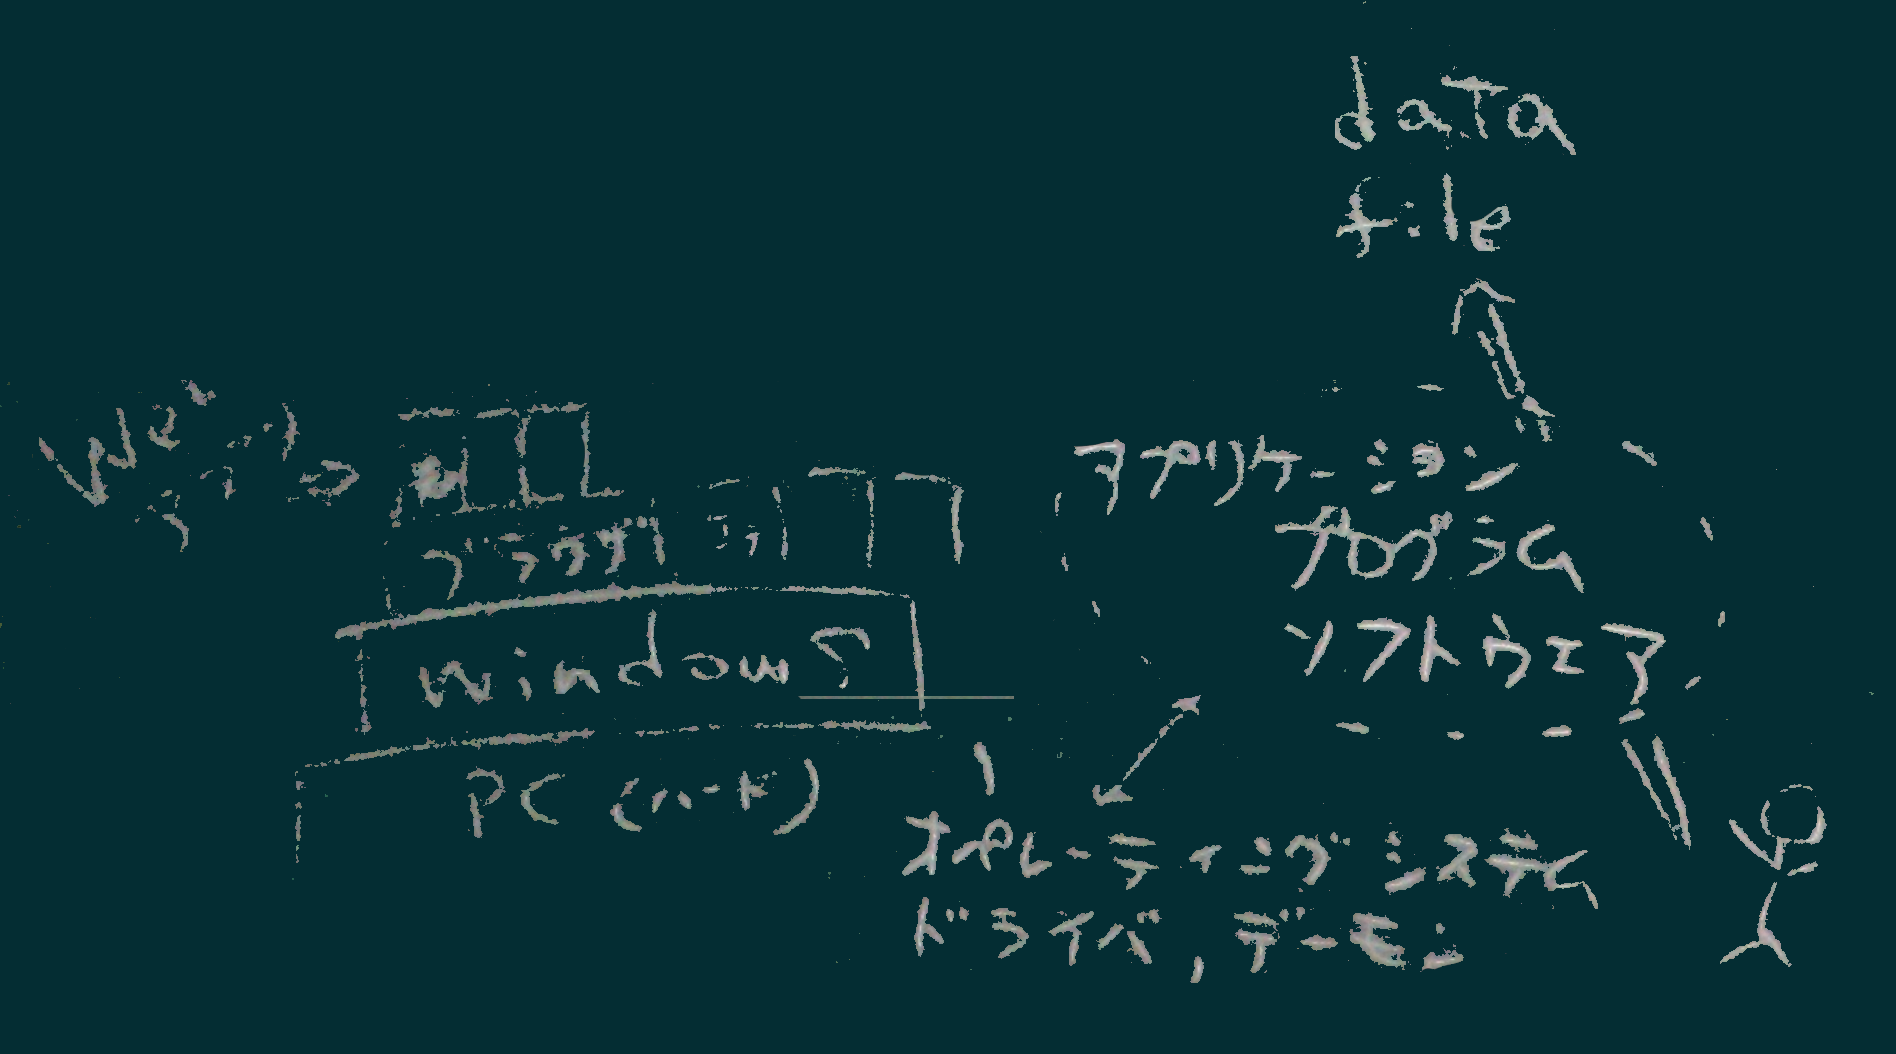 data
file
アプリケーション
プログラム
ソフトウェア
ブラウザ
Windows
PC (ハード)
オペレーティングシステム
ドライバ, デーモン